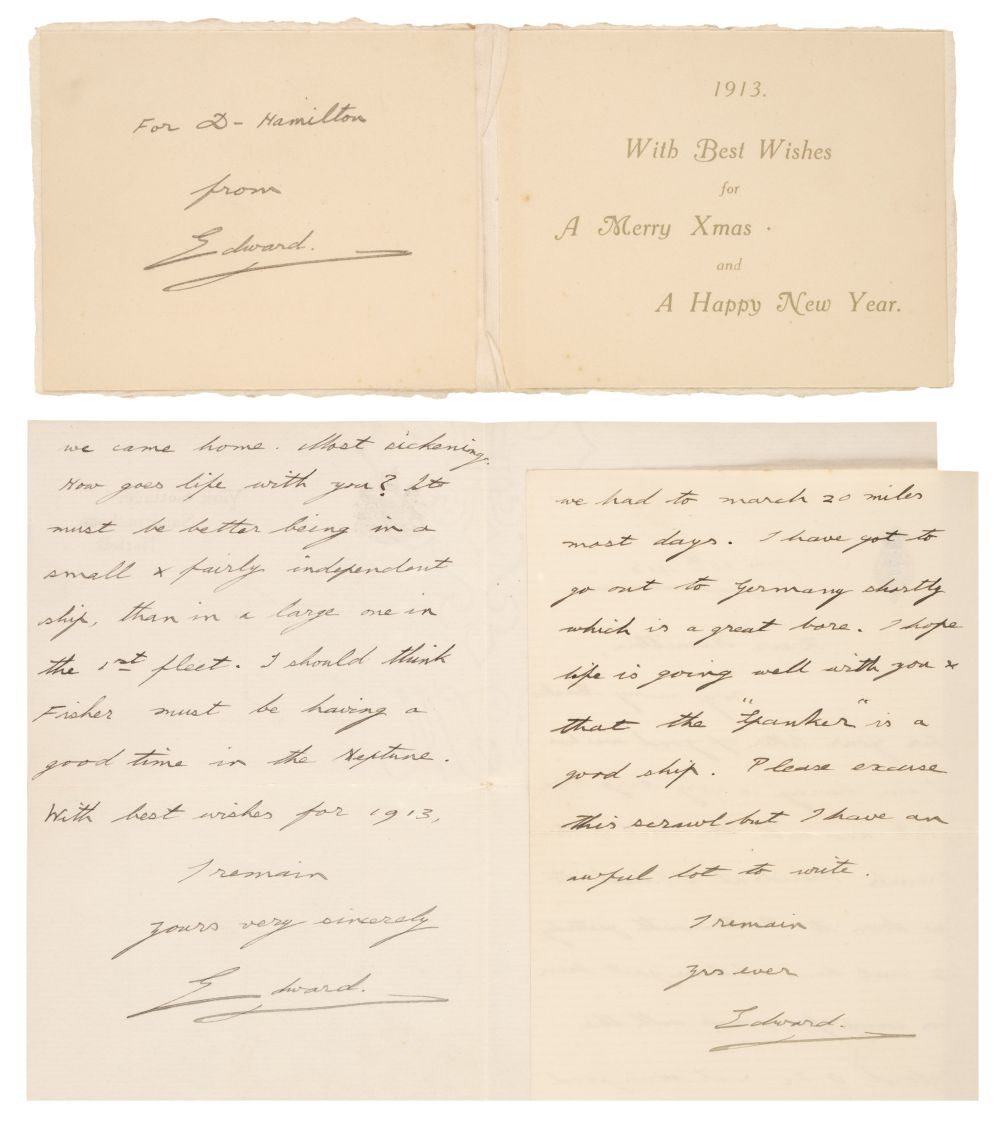 For D- Hamilton
from
Edward.
1913.
With Best Wishes
for
A Merry Xmas
and
A Happy New Year.
we came home. Most sickening.
How goes life with you? It
must be better being in a
small & fairly independent
ship, than in a large one in
the 1st fleet. I should think
Fisher must be having a
good time in the Neptune.
With best wishes for 1913,
I remain
yours very sincerely
Edward.
we had to march 20 miles
most days. I have got to
go out to Germany shortly
which is a great bore. I hope
life is going well with you &
that the "Spanker" is a
good ship. Please excuse
this scrawl but I have an
awful lot to write.
I remain
yrs ever
Edward.